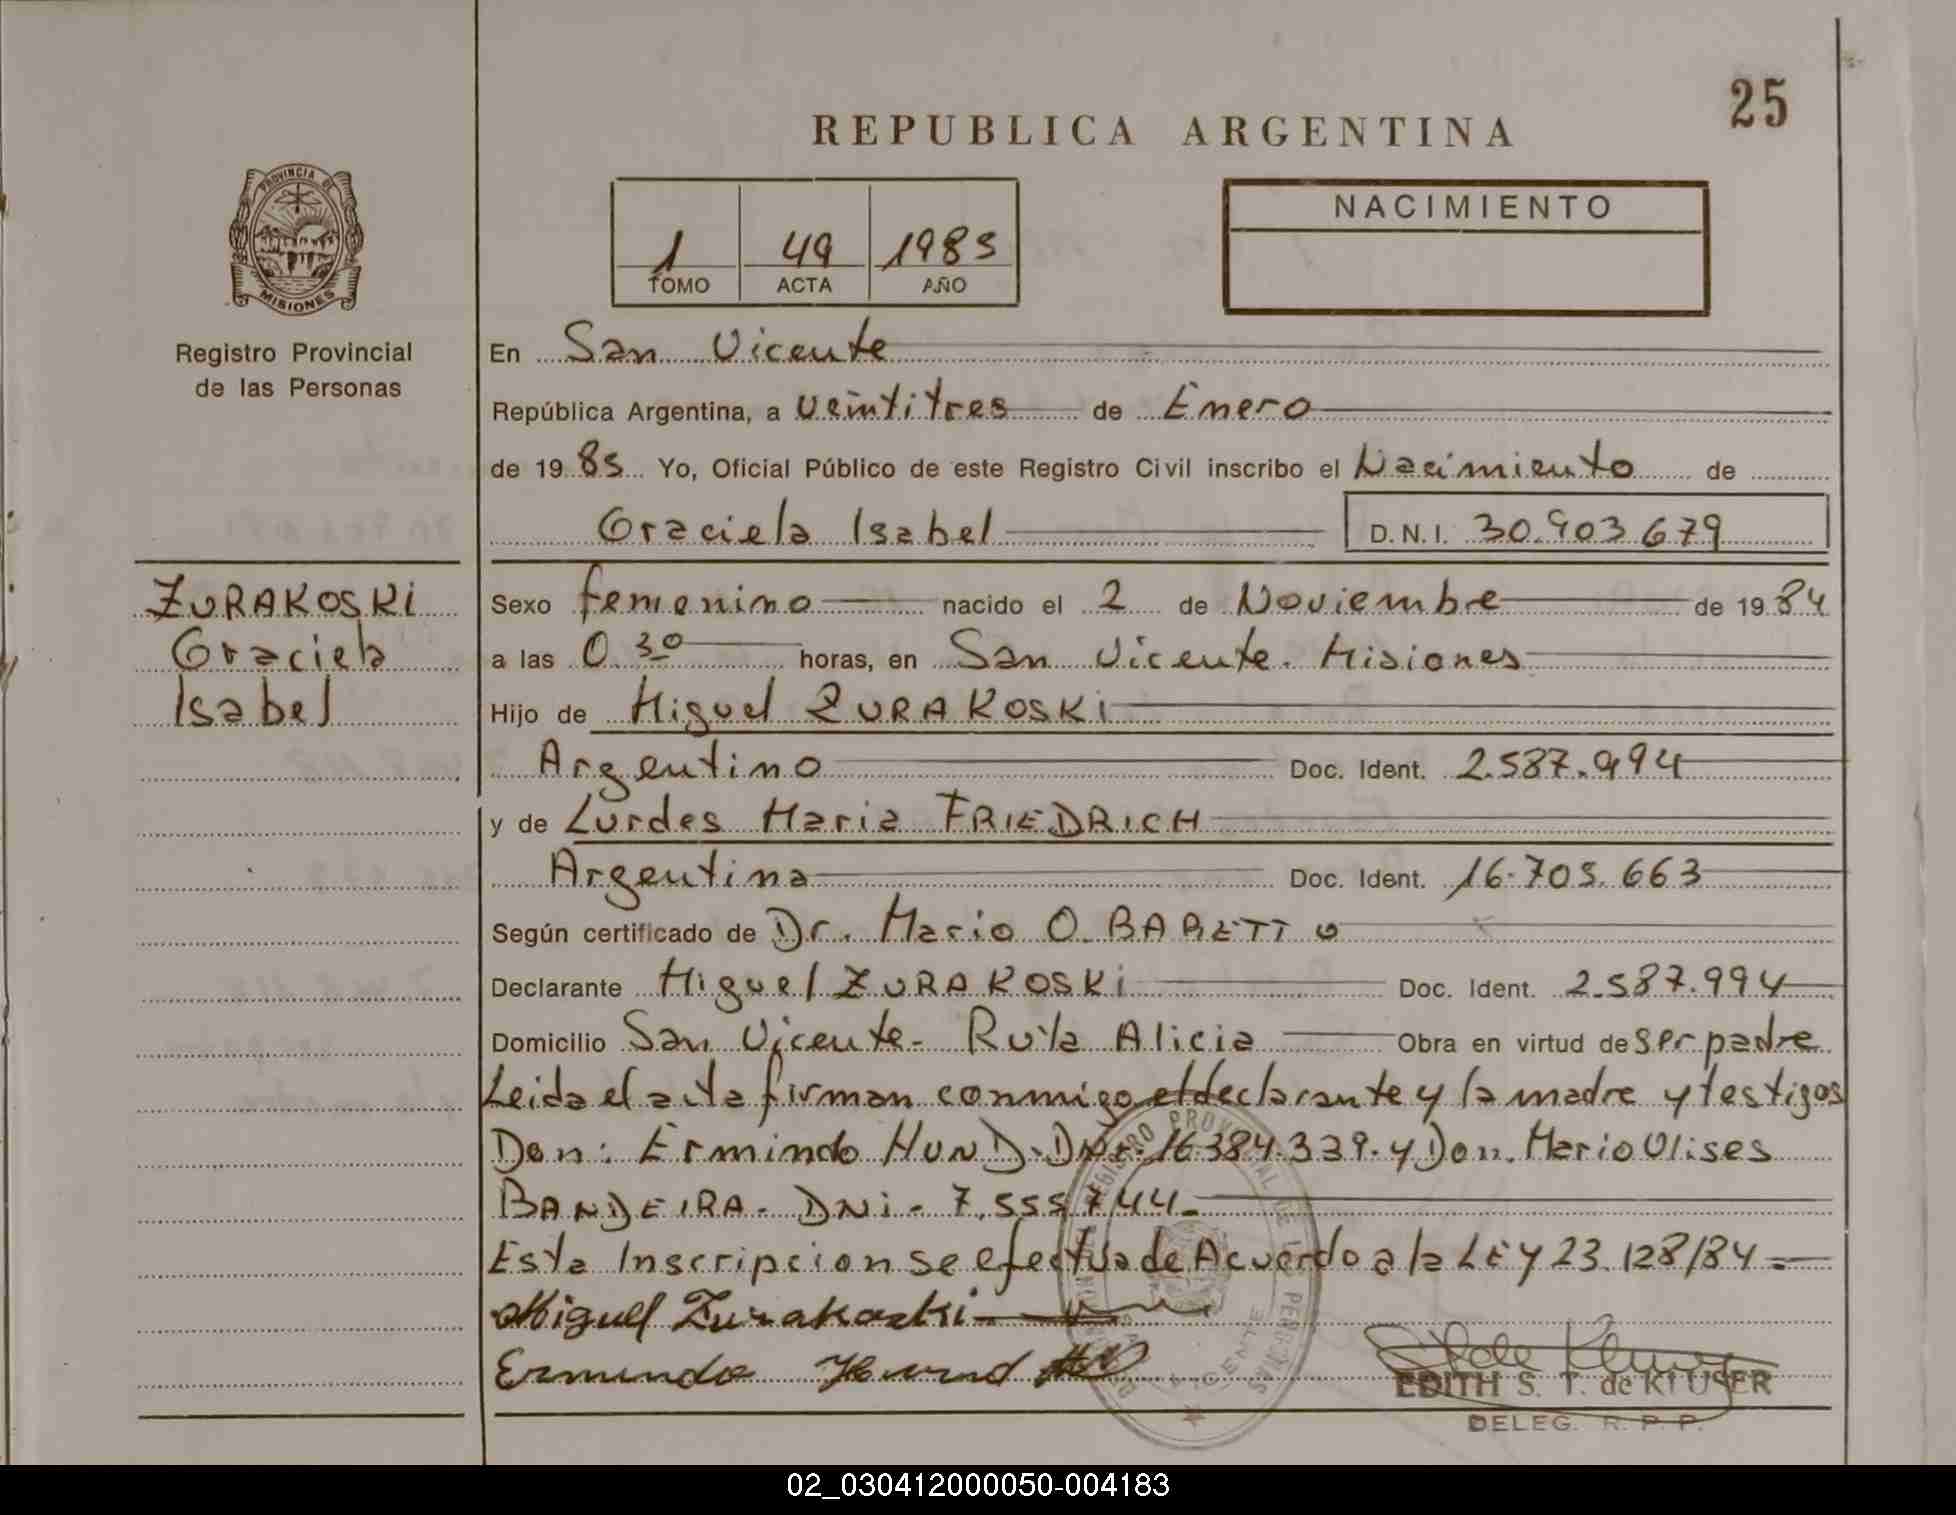 25
REPUBLICA ARGENTINA
PROVINCIA DE
MISIONES
Registro Provincial
de las Personas
1 49 1985
TOMO ACTA AÑO
NACIMIENTO
En San Vicente
República Argentina, a veintitres de Enero
de 1985 Yo, Oficial Público de este Registro Civil inscribo el Nacimiento de
Graciela Isabel D.N.I. 30.903.679
ZURAKOSKI
Graciela
Isabel
Sexo femenino nacido el 2 de Noviembre de 1984
a las 0.30 horas, en San Vicente. Misiones
Hijo de Miguel ZURAKOSKI
Argentino Doc. Ident. 2.587.994
y de Lurdes Maria FRIEDRICH
Argentina Doc. Ident. 16.705.663
Según certificado de Dr. Mario O. BARETTO
Declarante Miguel ZURAKOSKI Doc. Ident. 2.587.994
Domicilio San Vicente - Ruta Alicia Obra en virtud de ser padre
Leida el acta firman conmigo el declarante y la madre y testigos
Don: Ermindo HUND. DNI. 16.384.339. y Don. Mario Ulises
BANDEIRA - DNi - 7.555.744.-
Esta Inscripcion se efectua de Acuerdo a la LEY 23.128/84.=
Miguel Zurakoski
Ermindo Hund
EDITH S. T. de KLUSER
DELEG. R. P. P.
02_030412000050-004183